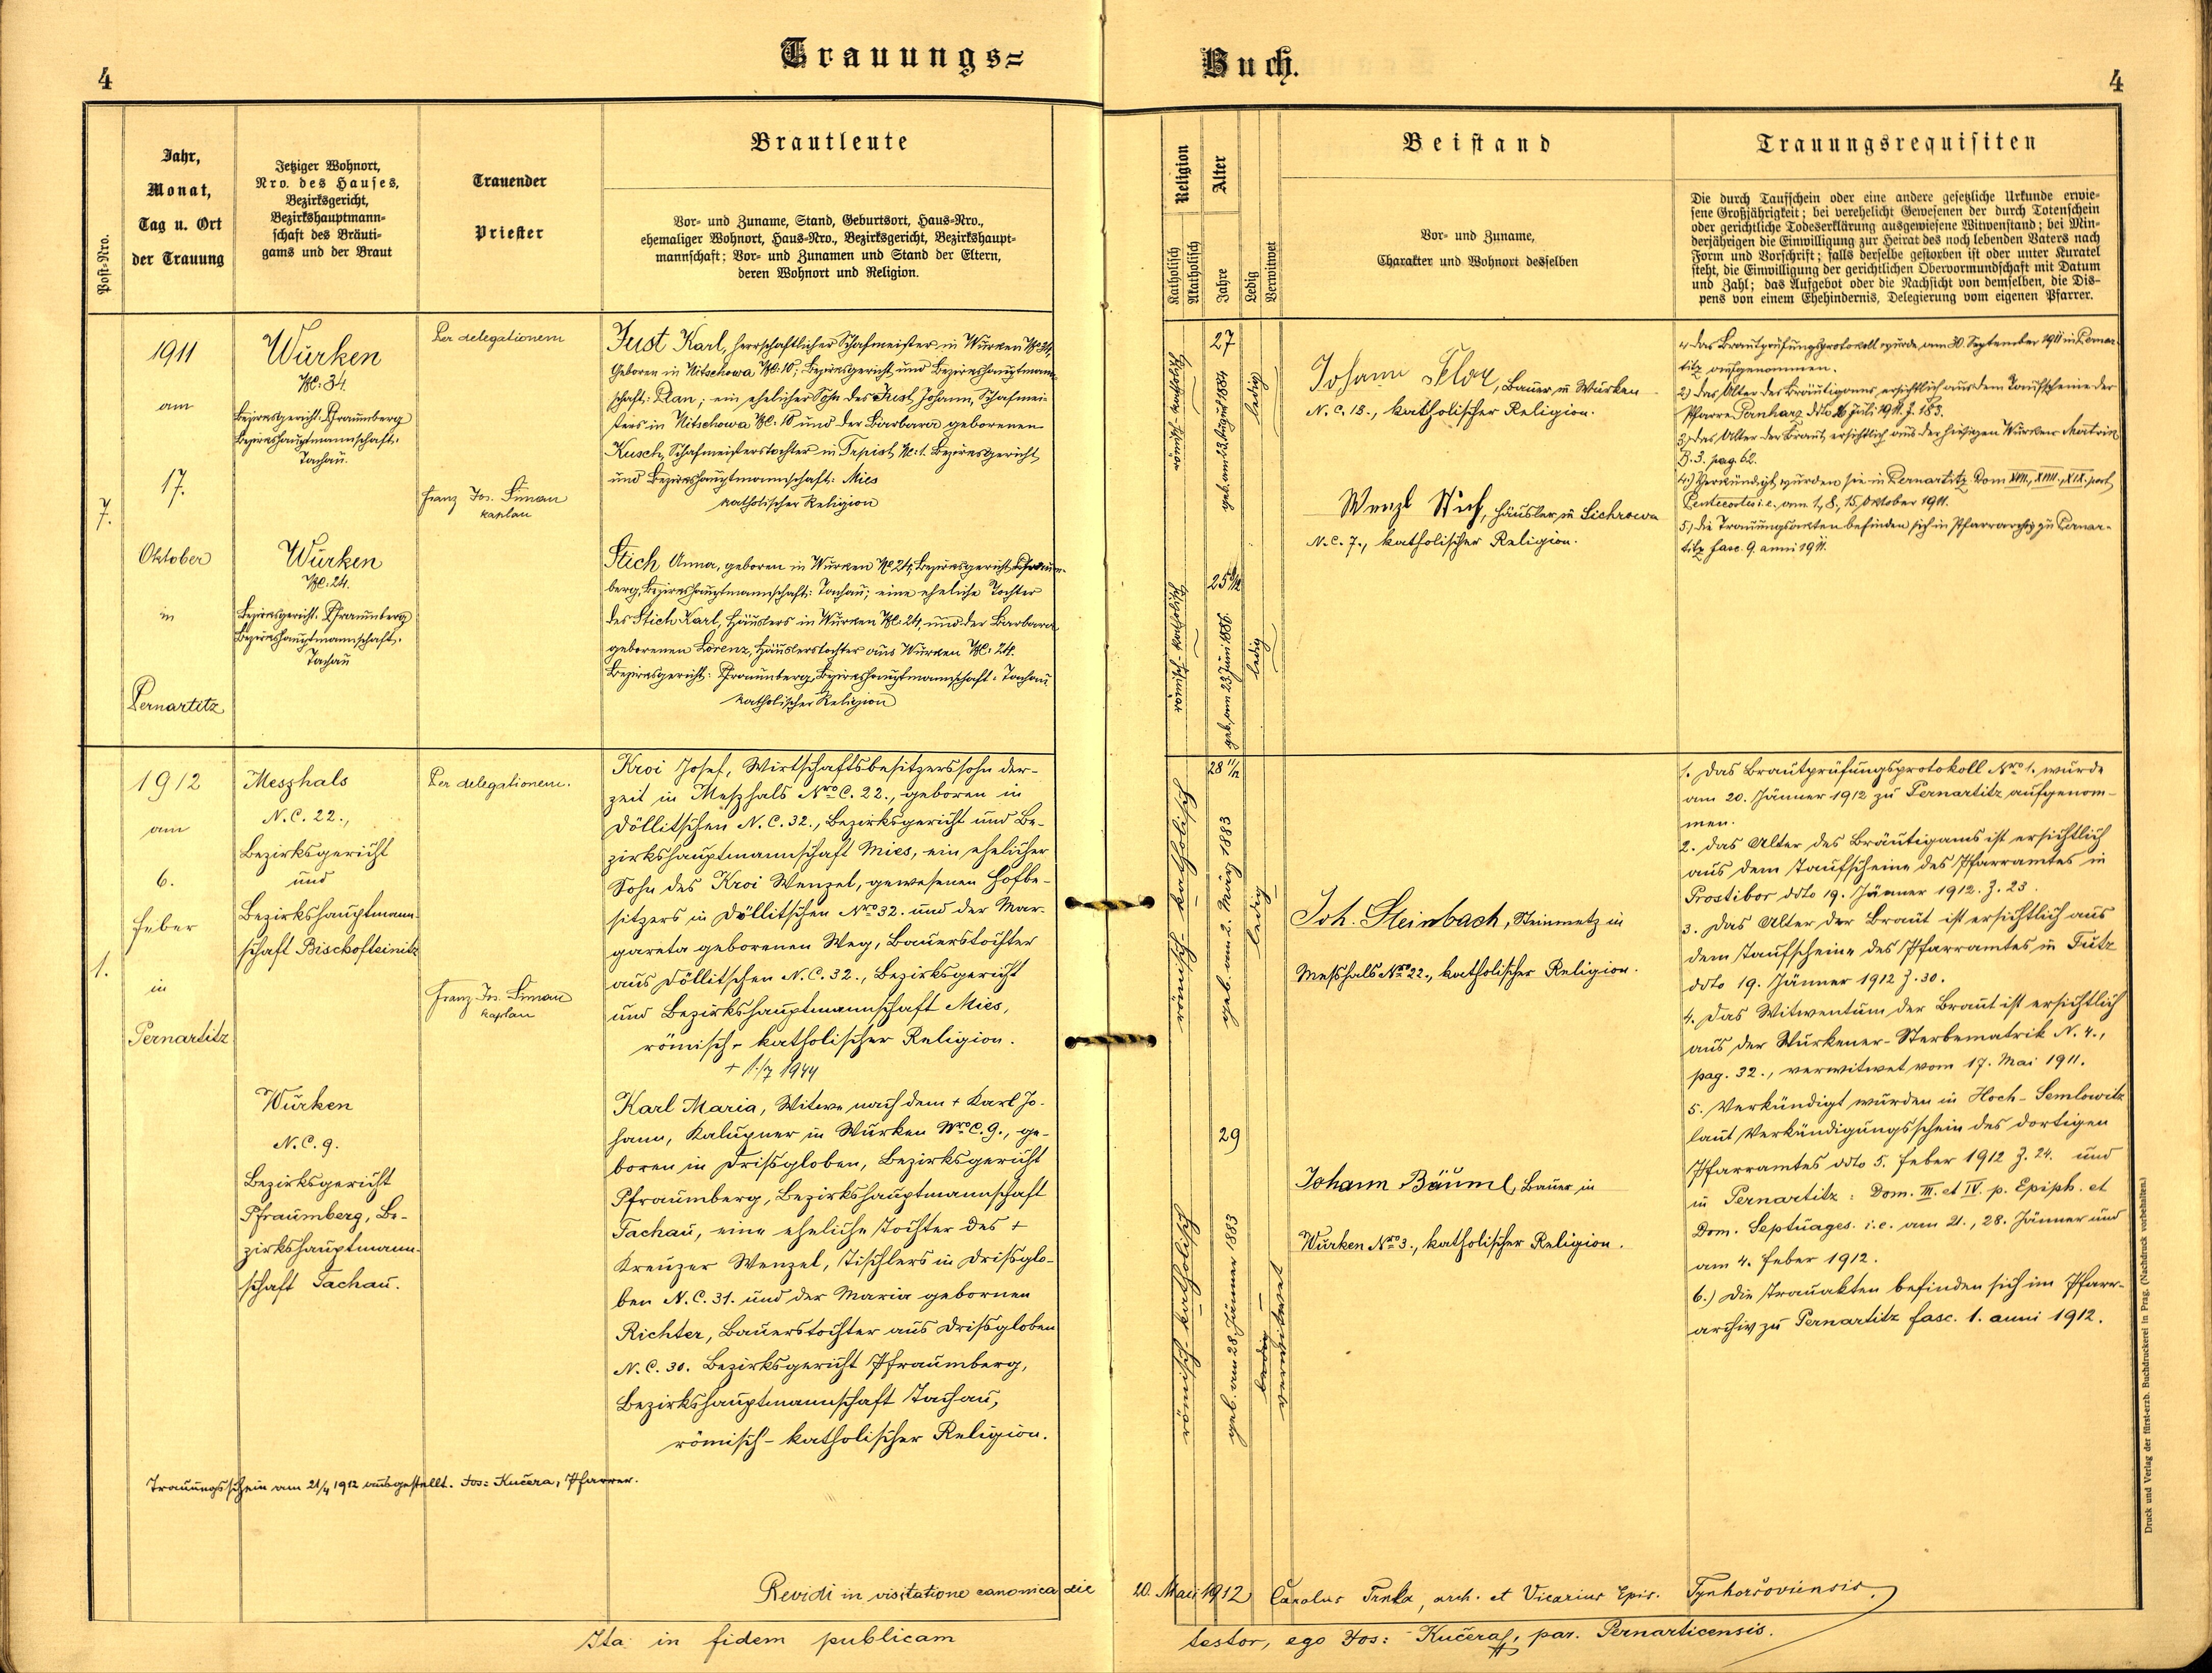 Trauungs=
Buch.
4
4
Post-Nro.
Jahr,
Monat,
Tag u. Ort
der Trauung
Jetziger Wohnort,
Nro. des Hauses,
Bezirksgericht,
Bezirkshauptmann-
schaft des Bräuti-
gams und der Braut
Trauender
Priester
Brautleute
Vor- und Zuname, Stand, Geburtsort, Haus-Nro.,
ehemaliger Wohnort, Haus-Nro., Bezirksgericht, Bezirkshaupt-
mannschaft; Vor- und Zunamen und Stand der Eltern,
deren Wohnort und Religion.
Religion
Katholisch
Akatholisch
Alter
Jahre
Ledig
Verwitwet
Beistand
Vor- und Zuname,
Charakter und Wohnort desselben
Trauungsrequisiten
Die durch Taufschein oder eine andere gesetzliche Urkunde erwie-
sene Großjährigkeit; bei verehelicht Gewesenen der durch Totenschein
oder gerichtliche Todeserklärung ausgewiesene Witwenstand; bei Min-
derjährigen die Einwilligung zur Heirat des noch lebenden Vaters nach
Form und Vorschrift; falls derselbe gestorben ist oder unter Kuratel
steht, die Einwilligung der gerichtlichen Obervormundschaft mit Datum
und Zahl; das Aufgebot oder die Nachsicht von demselben, die Dis-
pens von einem Ehehindernis, Delegierung vom eigenen Pfarrer.
7.
1911
am
17.
Oktober
in
Pernartitz
Würken
Nc. 34.
Bezirksgericht: Pfraumberg
Bezirkshauptmannschaft:
Tachau.
Würken
Nc. 24.
Bezirksgericht: Pfraumberg
Bezirkshauptmannschaft:
Tachau
Per delegationem
Franz Jos. Šimau
kaplan
Just Karl, herrschaftlicher Schafmeister in Würken Nc 34,
Geboren in Nitschowa Nc: 10; Bezirksgericht und Bezirkshauptmann-
schaft: Plan; ein ehelicher Sohn des Just Johann, Schafmei-
sters in Nitschowa Nc: 10 und der Barbara geborenen
Kusch, Schafmeisterstochter in Trpist Nc: 1. Bezirksgericht
und Bezirkshauptmannschaft: Mies
katholischer Religion
Stich Anna, geboren in Würken Nc 24; Bezirksgericht Pfraum-
berg, Bezirkshauptmannschaft: Tachau; eine eheliche Tochter
des Stich Karl, Häuslers in Würken Nc: 24, und der Barbara
geborenen Lorenz, Häuslerstochter aus Würken Nc: 24.
Bezirksgericht: Pfraumberg, Bezirkshauptmannschaft: Tachau
katholischer Religion
römisch-katholisch
27
geb. am 22. August 1884
ledig
römisch-katholisch
geb. am 23. Juni 1886.
ledig
Johann Flor, Bauer in Würken
N. C. 18., katholischer Religion.
Wenzl Stich, Häusler in Sichrowa
N. C. 7., katholischer Religion.
1. Das Brautprüfungsprotokoll wurde am 30. September 1911 in Pernar-
titz aufgenommen.
2.) Das Alter des Bräutigams ersichtlich aus dem Taufscheine der
Pfarre Pernharz ddto 26 Juli 1911. Z. 183.
3.) Das Alter der Braut, ersichtlich aus der hiesigen Würken Matrik
B. 3. pag. 62.
4.) Verkündigt wurden sie in Pernartitz Dom XVII., XVIII., XIX. post
Pentecostes i. e. am 1., 8., 15. Oktober 1911.
5.) Die Trauungsakten befinden sich in Pfarrarchiv zu Pernar-
titz fasc. 9. anni 1911.
1.
1912
am
6.
Feber
in
Pernartitz
Meszhals
N. C. 22.,
Bezirksgericht
und
Bezirkshauptmann-
schaft Bischofteinitz
Würken
N. C. 9.
Bezirksgericht
Pfraumberg, Be-
zirkshauptmann-
schaft Tachau.
Per delegationem.
Franz Jos. Šimau
kaplan
Kroi Josef, Wirtschaftsbesitzerssohn der-
zeit in Meszhals Nro C. 22., geboren in
Döllitschen N. C. 32., Bezirksgericht und Be-
zirkshauptmannschaft Mies, ein ehelicher
Sohn des Kroi Wenzel, gewesenen Hofbe-
sitzers in Döllitschen Nro 32. und der Mar-
gareta geborenen Weg, Bauerstochter
aus Döllitschen N. C. 32., Bezirksgericht
und Bezirkshauptmannschaft Mies,
römisch-katholischer Religion.
+ 1./7 1944
Karl Maria, Witwe nach dem + Karl Jo-
hann, Kalupner in Würken Nro C. 9., ge-
boren in Drißgloben, Bezirksgericht
Pfraumberg, Bezirkshauptmannschaft
Tachau, eine eheliche Tochter des +
Kreuzer Wenzel, Tischlers in Drißglo-
ben N. C. 31. und der Maria gebornen
Richter, Bauerstochter aus Drißgloben
N. C. 30. Bezirksgericht Pfraumberg,
Bezirkshauptmannschaft Tachau,
römisch-katholischer Religion.
römisch-katholisch
28 11/12
geb. am 2. März 1883
ledig
römisch katholisch
29
geb. am 28. Jänner 1883
ledig
verwitwet
Joh. Steinbach, Steinmetz in
Meßhals Nro 22., katholischer Religion.
Johann Bäuml, Bauer in
Würken Nro 3., katholischer Religion.
1. Das Brautprüfungsprotokoll Nro 1. wurde
am 20. Jänner 1912 zu Pernartitz aufgenom-
men.
2. Das Alter des Bräutigams ist ersichtlich
aus dem Taufscheine des Pfarramtes in
Prostibor ddto 19. Jänner 1912. Z. 23.
3. Das Alter der Braut ist ersichtlich aus
dem Taufscheine des Pfarramtes in Tutz
ddto 19. Jänner 1912 Z. 30.
4. Das Witwentum der Braut ist ersichtlich
aus der Würkener-Sterbematrik N. 4.,
pag. 32., verwitwet vom 17. Mai 1911.
5. Verkündigt wurden in Hoch-Semlowitz
laut Verkündigungsschein des dortigen
Pfarramtes ddto 5. Feber 1912 Z. 24. und
in Pernartitz: Dom. III. et IV. p. Epiph. et
Dom. Septuages. i. e. am 21., 28. Jänner und
am 4. Feber 1912.
6.) Die Trauakten befinden sich im Pfarr-
archiv zu Pernartitz fasc. 1. anni 1912.
Trauungsschein am 21/4 1912 ausgestellt. Jos: Kučera, Pfarrer.
Revidi in visitatione canonica die 20. Maii 1912 Carolus Trnka, arch. et Vicarius Epis. Tynhoršoviensis.
Ita in fidem publicam testor, ego Jos: Kučera, par. Pernarticensis.
Druck und Verlag der fürst-erzb. Buchdruckerei in Prag. (Nachdruck vorbehalten.)